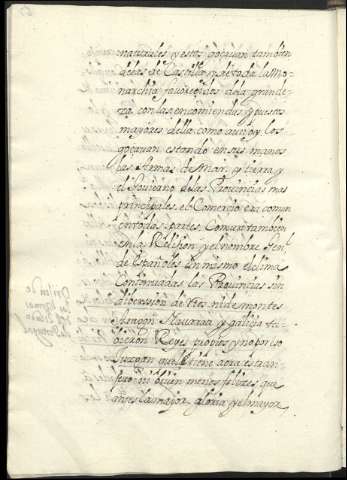 naturales, y estos goçauan tambien
de las de Castilla, y de toda la Mo-
narchia fauorecidos de la grande-
za, con las encomiendas, y puestos
mayores della como aun oy los
goçauan, estando en sus manos
las Armas de Mar, y tierra, y
el Gouierno de las Prouincias mas
principales, el Comercio era comun
en todas partes, Comun tambien
en la Relihion, y el nombre Gen.l
de Españoles, Un mismo el clima
Continuadas las Prouincias sin
diuission de rios, ni de montes
Aragon, Nauarra, y galicia tu-
bieron Reyes propios, y no por eso
Juzgan que el que tiene aora es tran
gero, ni biuen menos felices que
antes la mayor gloria, y el mayor